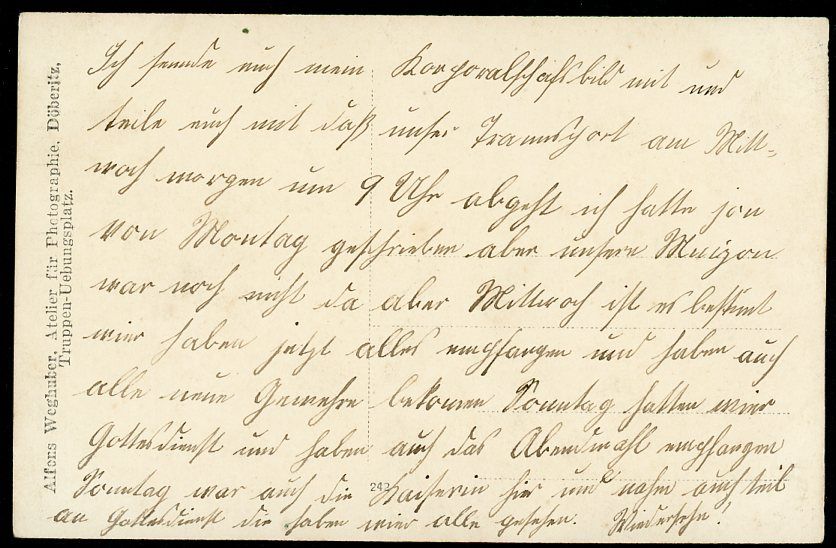 Ich sende euch mein Korporalschafsbild mit und
teile euch mit daß unser Trannsport am Mitt-
woch morgen um 9 Uhr abgeht ich hatte
von Montag geschrieben aber unsere
war noch nicht da aber Mittwoch ist es bestimt
wier haben jetzt alles empfangen und haben auch
alle neue Gewehre bekomen Sonntag hatten wier
Gottesdienst und haben auch das Abendmahl empfangen
Sonntag war auch die Kaiserin hier und nahm auch teil
an Gottesdienst die haben wier alle gesehen. Wiedersehn!
Alfons Weghuber, Atelier für Photographie, Döberitz,
Truppen-Uebungsplatz.
242